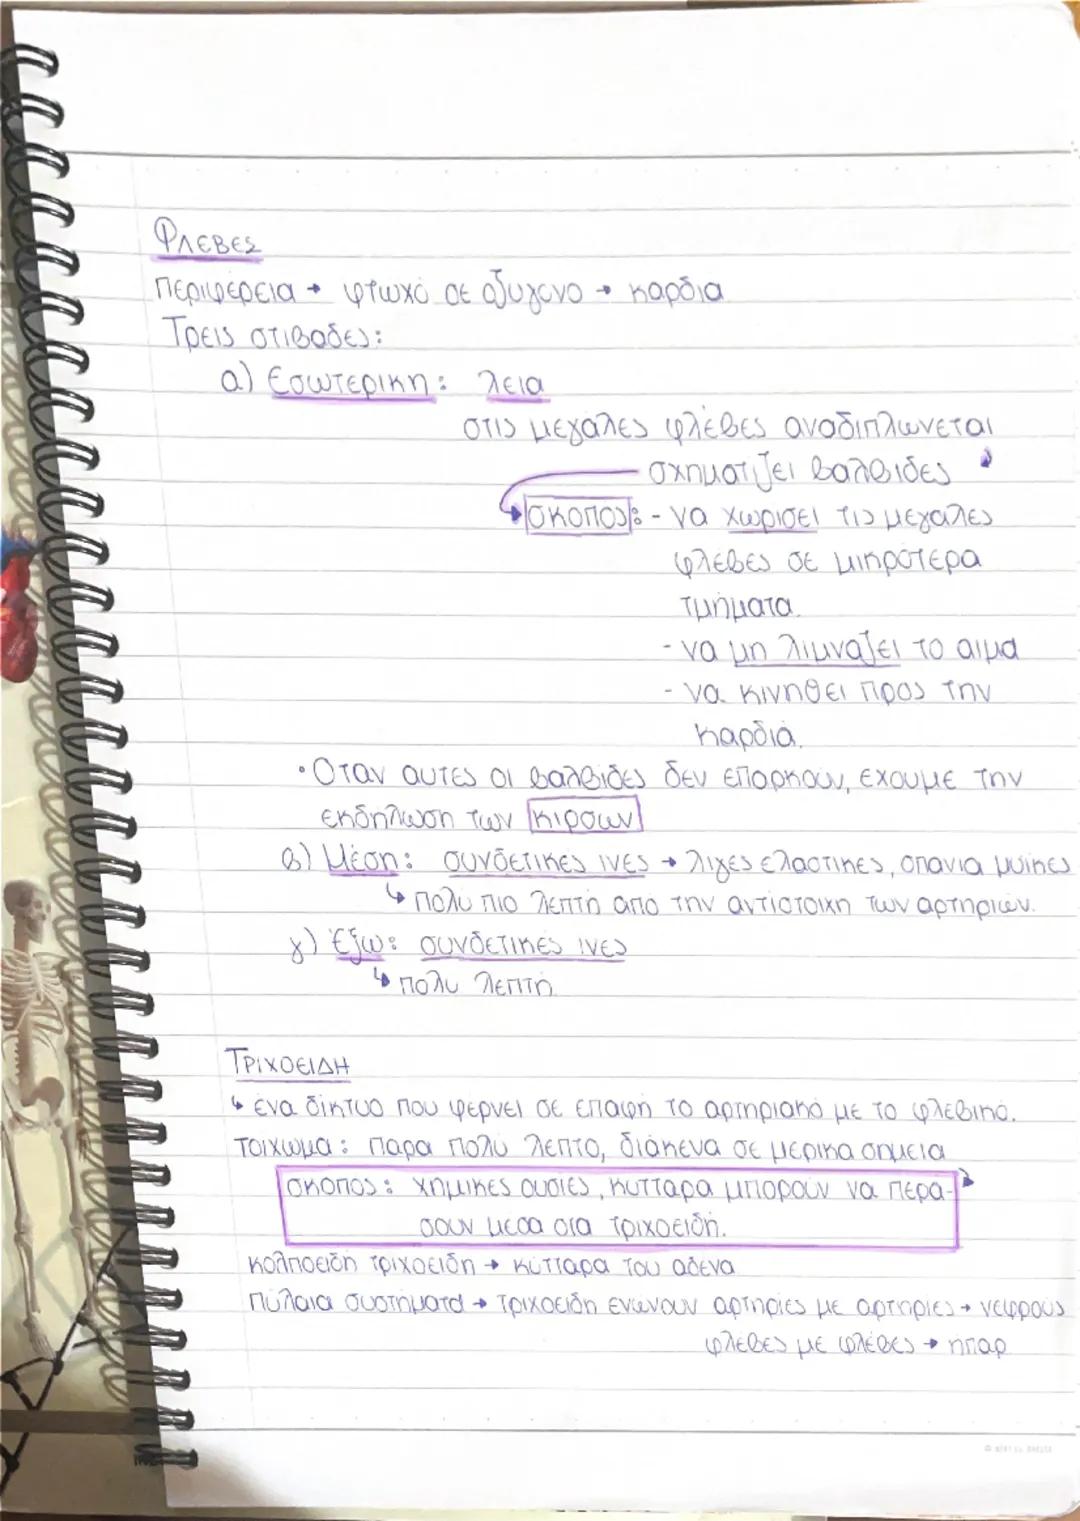 ΦΛΕΒΕΣ
περιφερεια → φτωχό σε οξυγονο → καρδια
Τρεις στιβαδες:
α) Εσωτερικη: λεια
στις μεγαλες φλεβες αναδιπλωνεται
σχηματιζει βαλβιδες
σκοπος: - να χωρισει τις μεγαλες
φλεβες σε μικρότερα
τμήματα.
- να μη λιμναζει το αιμα
- να κινηθει προς την
καρδιά.
• Οταν αυτες οι βαλβιδες δεν επαρκουν, εχουμε την
εκδηλωση των κιρσων
β) Μέση: συνδετικές ινες → λιγες ελαστικες, σπανια μυικες
↳ πολυ πιο λεπτή απο την αντίστοιχη των αρτηριών.
γ) Έξω: συνδετικές ινες
↳ πολυ λεπτή
ΤΡΙΧΟΕΙΔΗ
↳ ένα δίκτυο που φερνει σε επαφή το αρτηριακό με το φλεβικό.
τοιχωμα: παρα πολύ λεπτο, διάκενα σε μερικα σημεια
σκοπος: χημικες ουσιες, κυτταρα μπορούν να περα-
σουν μεσα στα τριχοειδή.
κολποειδή τριχοειδη → κύτταρα του αδενα
πύλαια συστήματα → τριχοειδη ενωνουν αρτηρίες με αρτηριες → νεφρους
φλεβες με φλέβες → ηπαρ